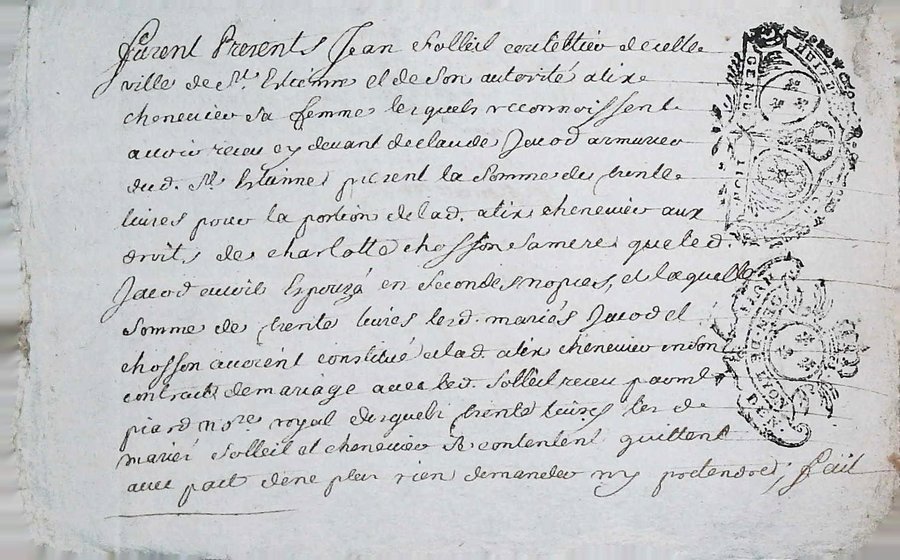 furent Presents Jean Solleil coutellier de cette
ville de St. Estienne et de Son autorité alix
chenevier sa femme lesquels reconnoissent
avoir receu cy devant de claude Jacod armurier
dud. St. Estienne present la Somme de trente
livres pour la portion de lad. alix chenevier aux
droits de charlotte chosson Sa mere que led.
Jacod avoit Espouzé en Secondes nopces, et laquelle
somme de trente livres lesd. mariés Jacod et
chosson avoient constitué a lad. alix chenevier en son
contract de mariage avec led. Solleil receu par mt
piard nore royal desquels trente livres les d
mariés Solleil et chenevier se contentent quittent
avec pact de ne plus rien demander ny pretendre, fait
GEN. DE LION
HUIT D
GEN. DE LION
DEN.